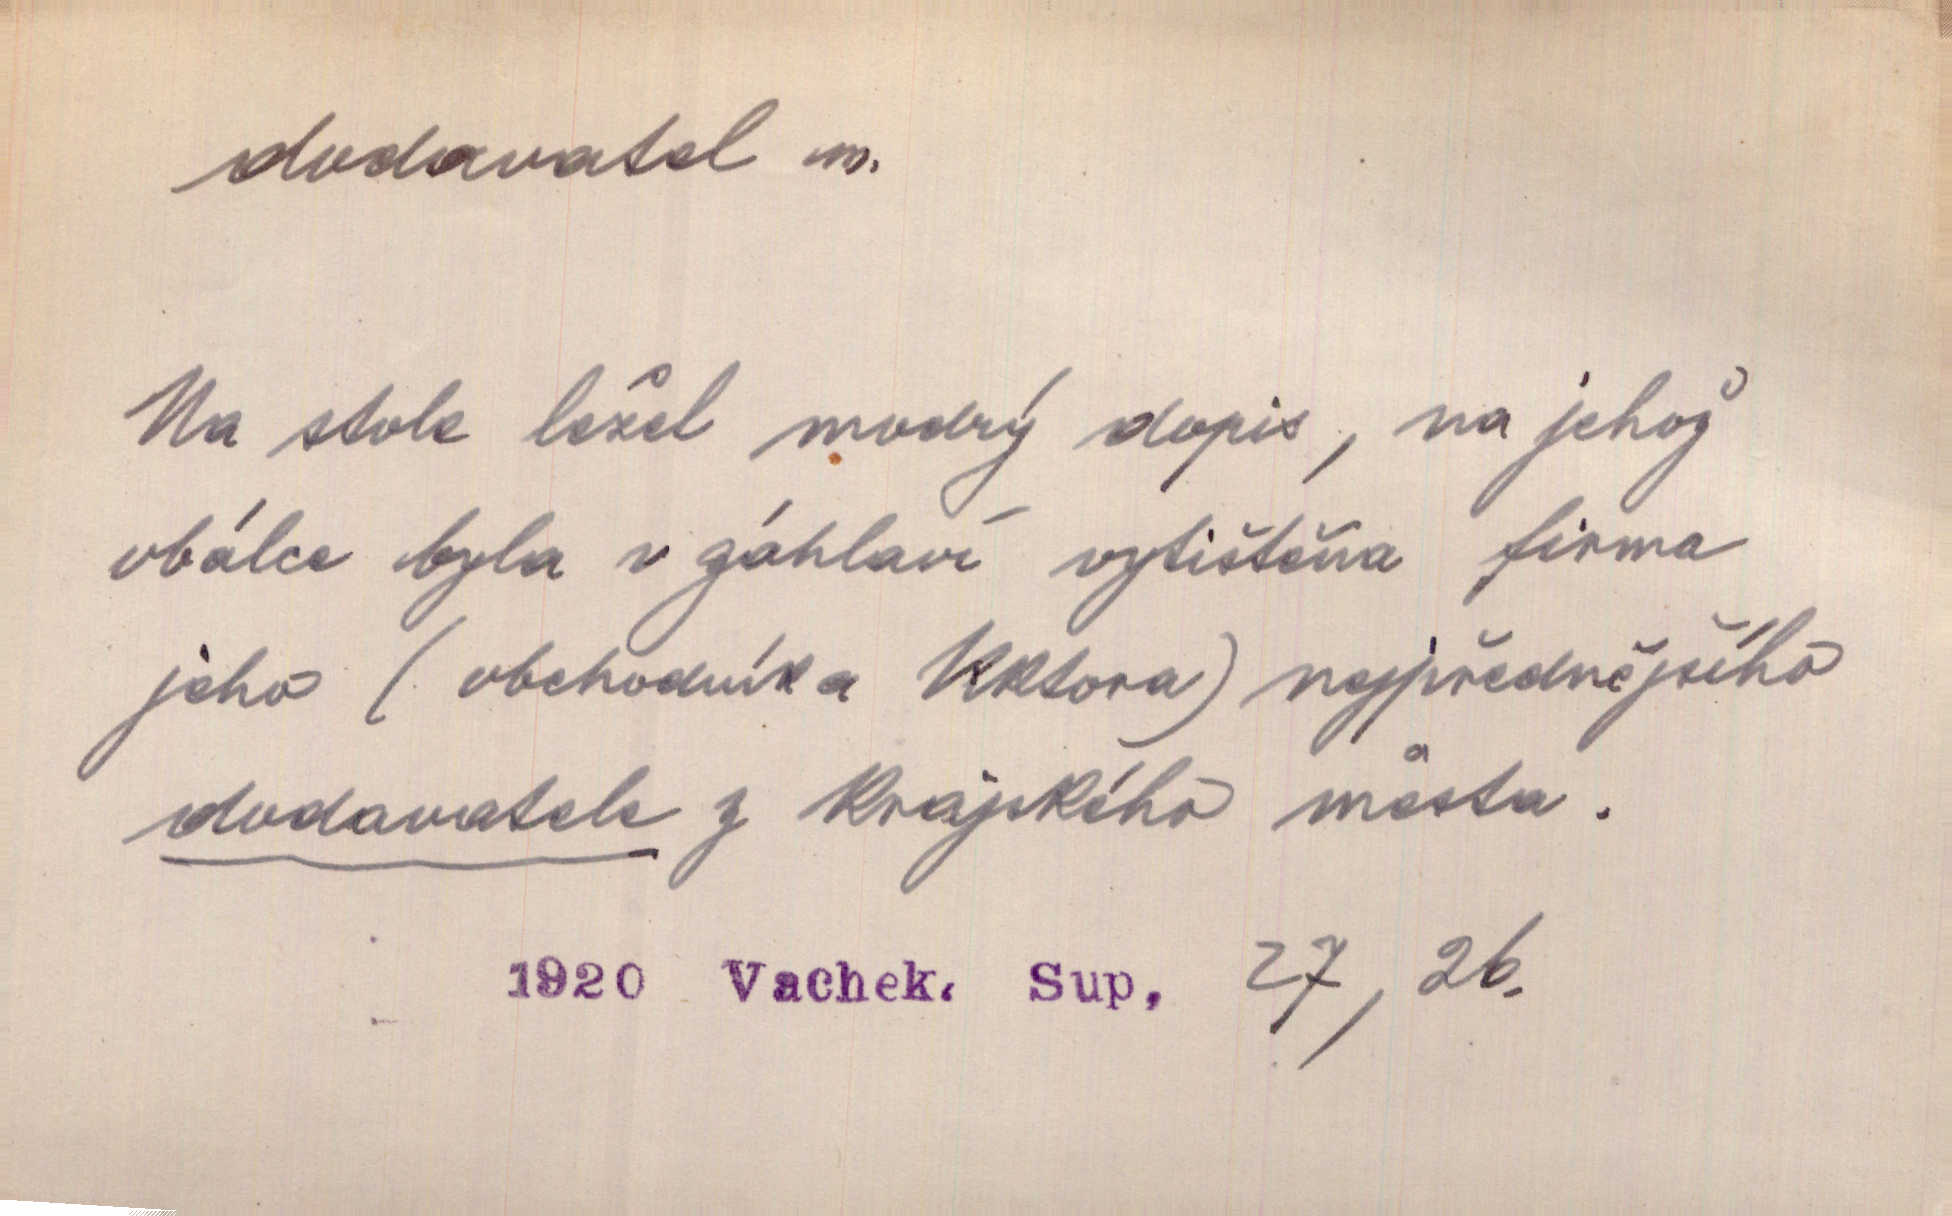 dodavatel m.
Na stole ležel modrý dopis, na jehož
obálce byla v záhlaví vytištěna firma
jeho (obchodníka Kktora) nejpřednějšího
dodavatele z krajského města.
1920 Vachek. Sup, 27, 26.